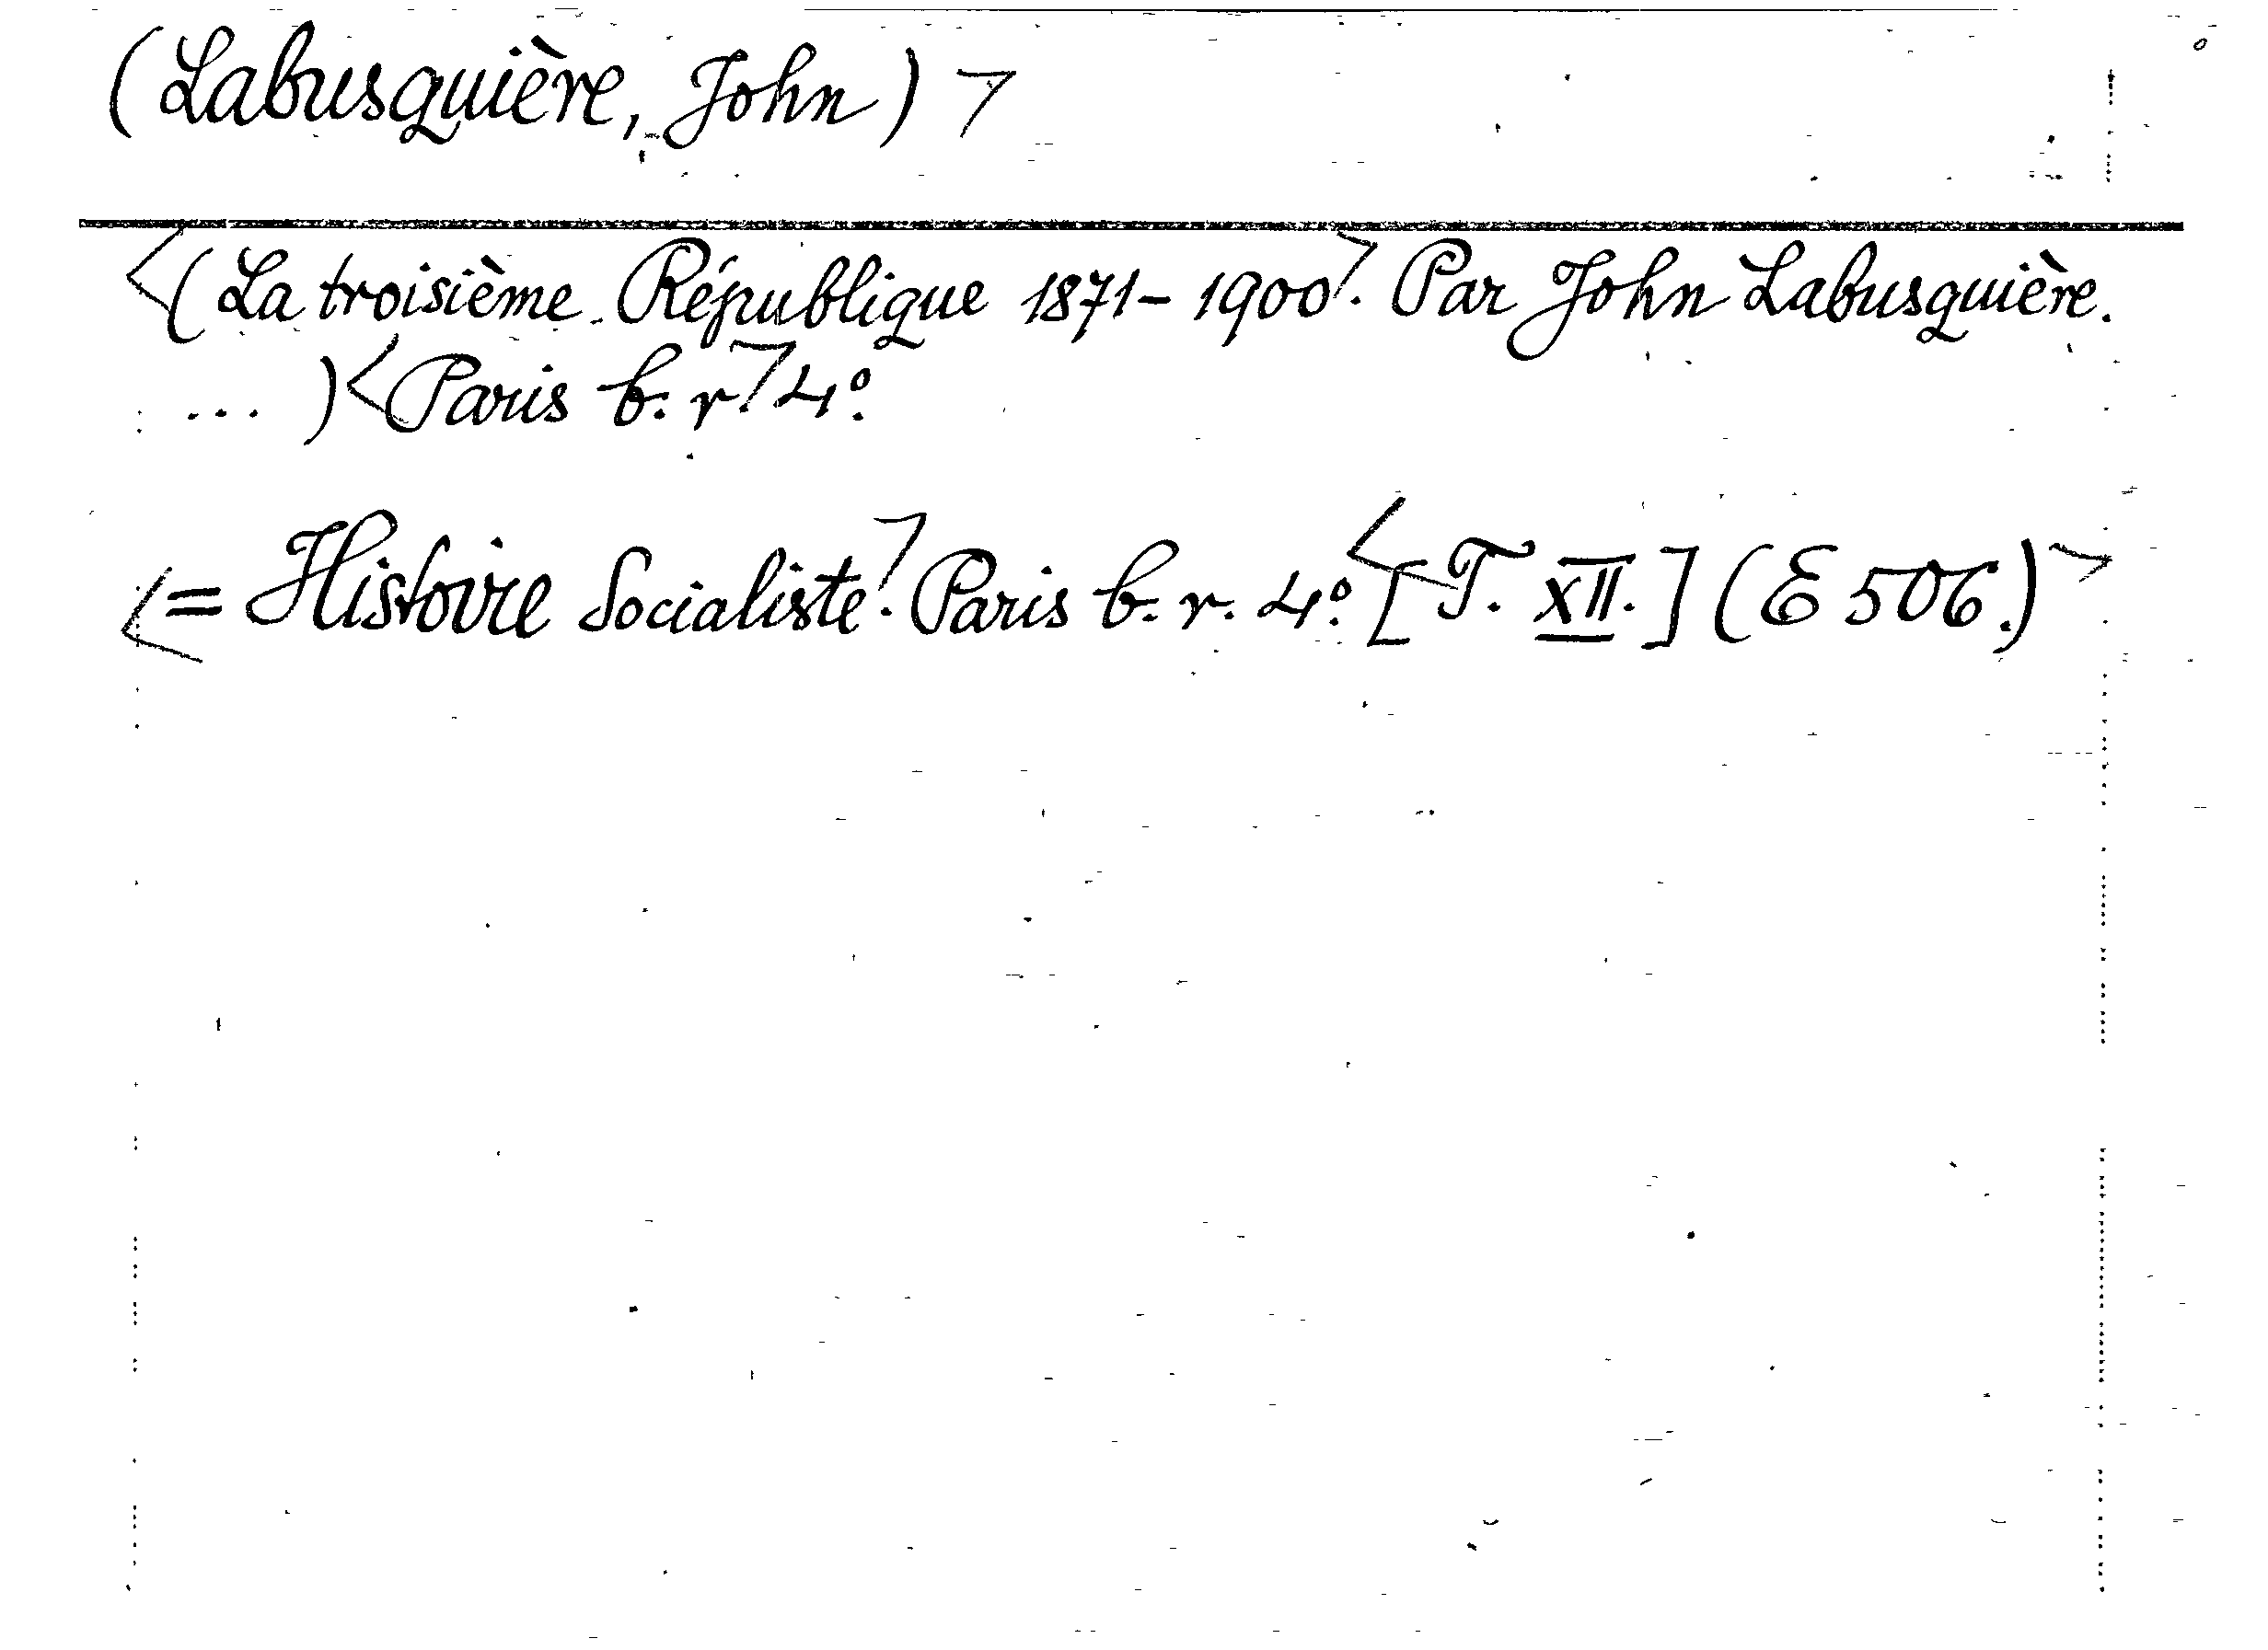 (Labusquière, John) >
<(La troisième République 1871-1900>. Par John Labusquière.
... ) <Paris b. r.> 4°.
<= Histoire Socialiste>. Paris b. r. 4°. <[T. XII.] (E 506.)>